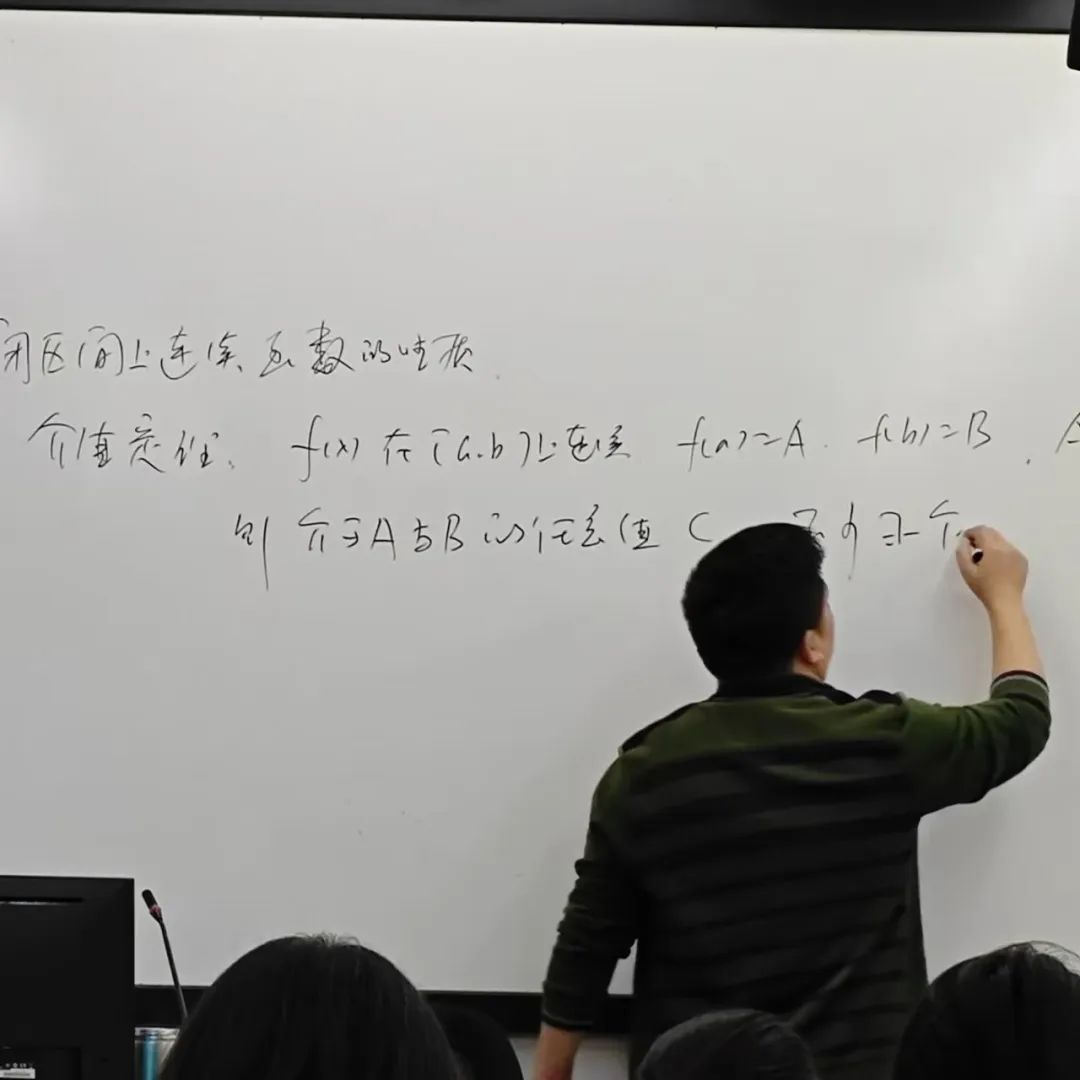 闭区间上连续函数的性质.
介值定理. f(x)在[a.b]上连续 f(a)=A. f(b)=B.
则介于A与B的任意值C 至少∃一个